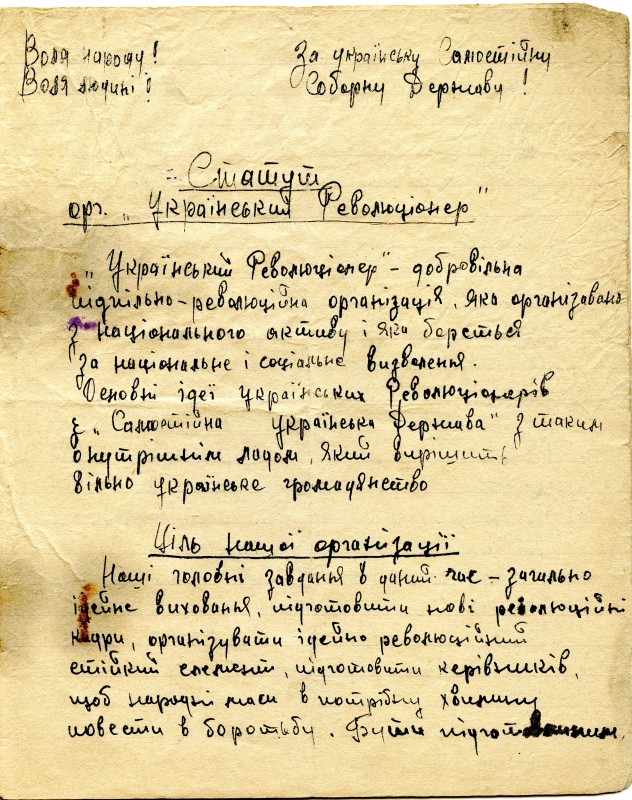 Воля народу!
Воля людині!
За українську Самостійну
Соборну Державу!
Статут
орг. „Український Революціонер"
„Український Революціонер" – добровільна
підпільно-революційна організація, яка організавана
з національного активу і яка береться
за національне і соціальне визволення.
Основні ідеї українських Революціонерів
є „Самостійна українська Держава" з таким
внутрішнім ладом, який вирішить
вільно українське громадянство
Ціль нашої організації
Наші головні завдання в даний час – загально
ідейне виховання, підготовити нові революційні
кадри, організувати ідейно революційний
стійкий елемент, підготовити керівників,
щоб народні маси в потрібну хвилину
повести в боротьбу. Бути підготовленим,